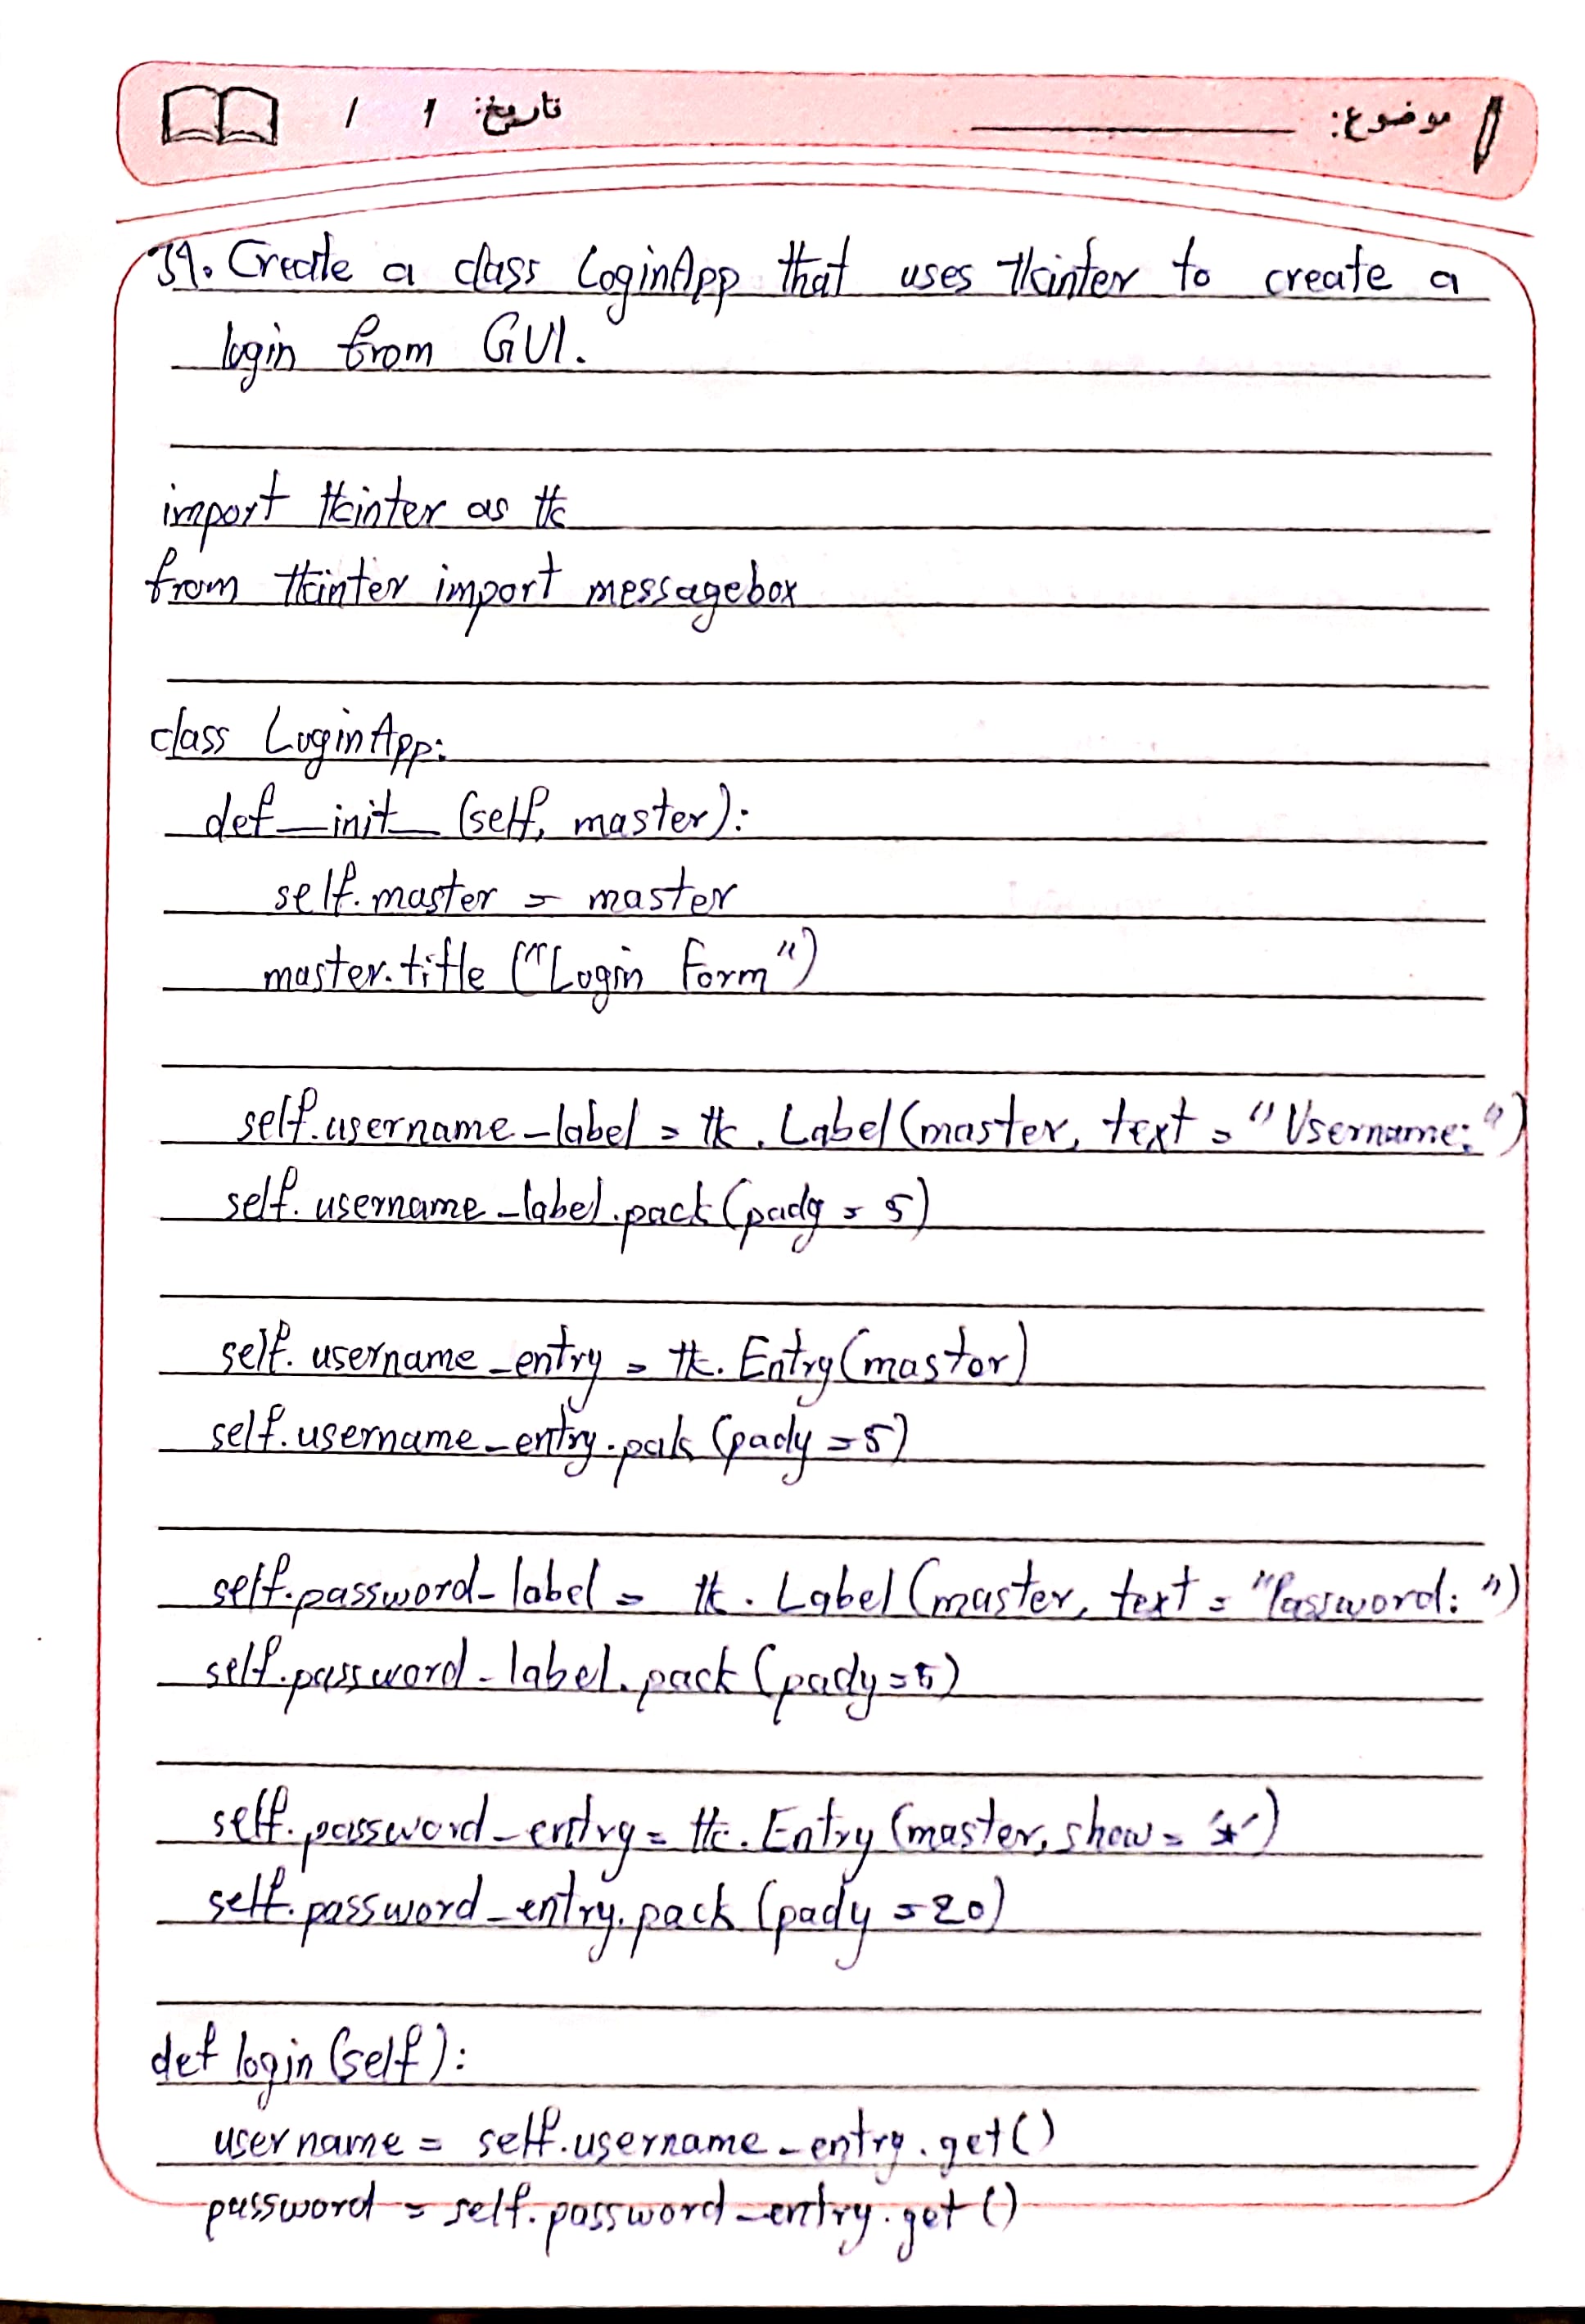 موضوع: تاریخ: / /
39. Create a class LoginApp that uses tkinter to create a
login from GUI.
import tkinter as tk
from tkinter import messagebox
class LoginApp:
def __init__ (self, master):
self.master = master
master.title ("Login Form")
self.username_label = tk.Label(master, text = "Username:")
self.username_label.pack(pady = 5)
self.username_entry = tk.Entry(mastor)
self.username_entry.pak (pady = 5)
self.password_label = tk.Label(master, text = "Password:")
self.password_label.pack (pady = 5)
self.password_entry = tk.Entry (master, show = '*')
self.password_entry.pack (pady = 20)
def login (self):
username = self.username_entry.get()
password = self.password_entry.get()